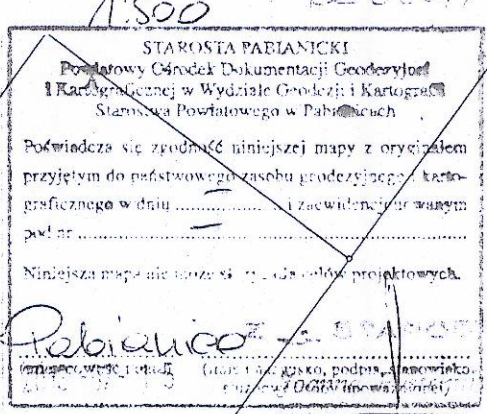 1:500
STAROSTA PABIANICKI
Powiatowy Ośrodek Dokumentacji Geodezyjnej
i Kartograficznej w Wydziale Geodezji i Kartografii
Starostwa Powiatowego w Pabianicach
Poświadcza się zgodność niniejszej mapy z oryginałem
przyjętym do państwowego zasobu geodezyjnego i karto-
graficznego w dniu .................... i zaewidencjonowanym
pod nr .................... 
Niniejsza mapa nie może służyć dla celów projektowych.
Pabianice
(miejscowość i data) (imię i nazwisko, podpis, stanowisko